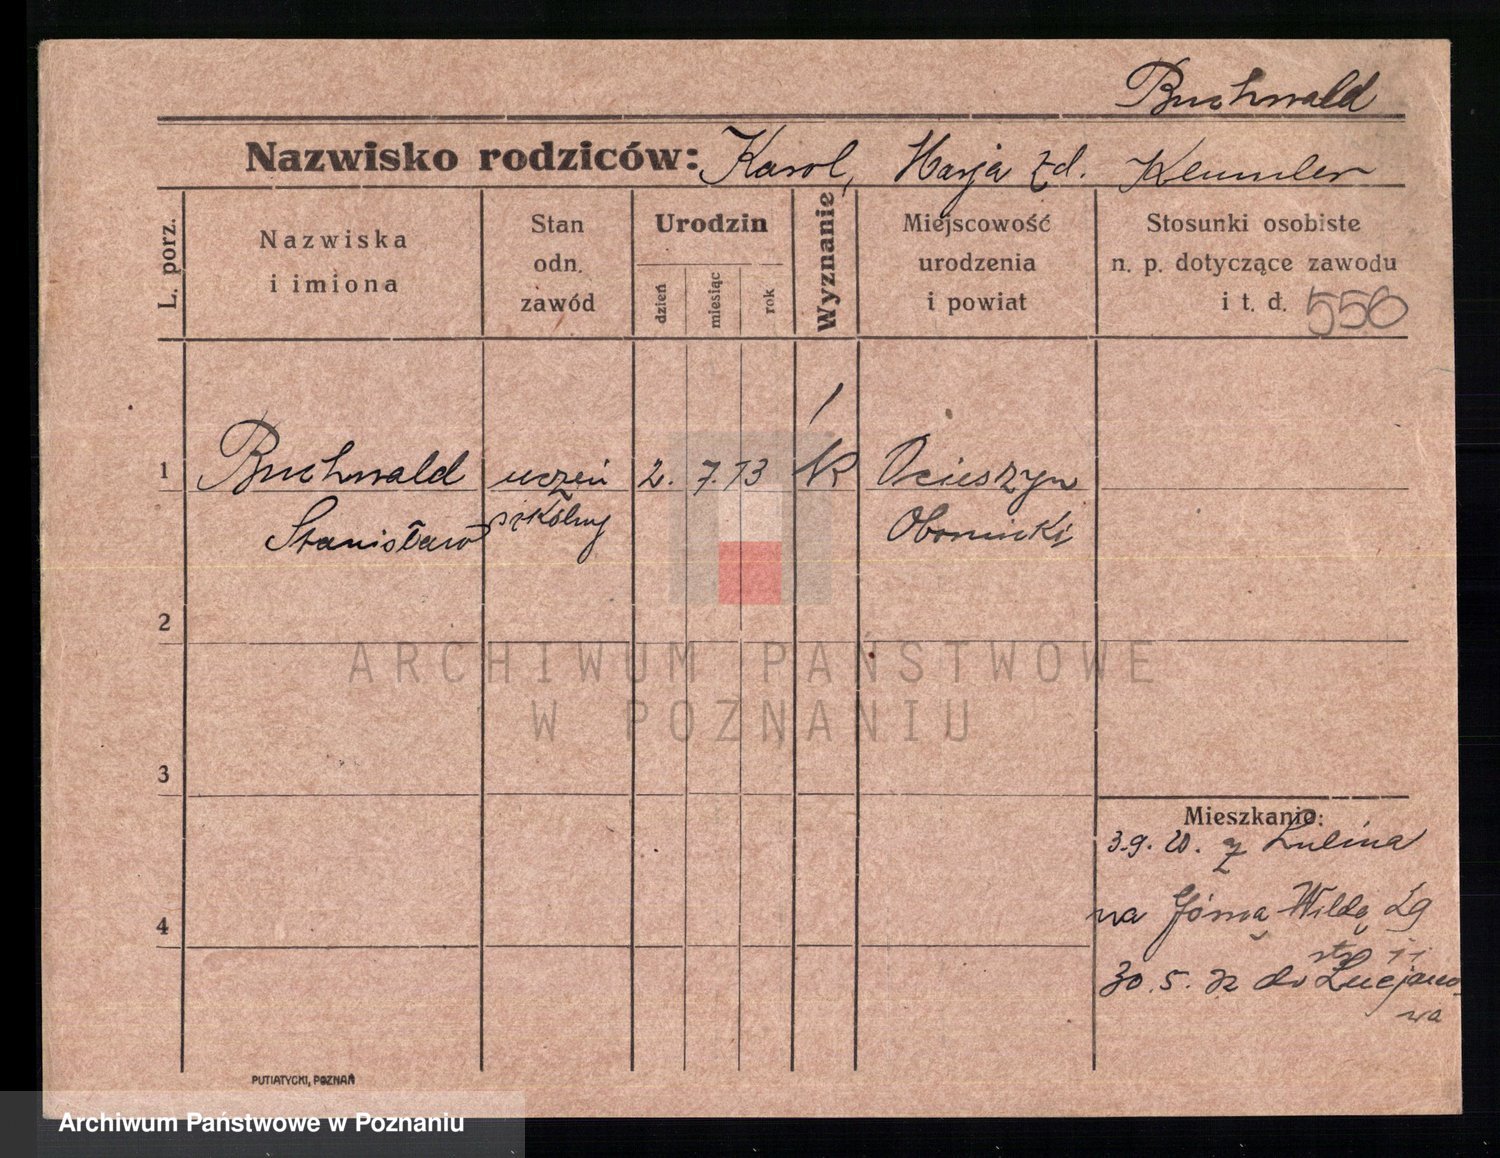 Buchwald
Nazwisko rodziców: Karol, Marja zd.
L. porz.
Nazwiska
i imiona
Stan
odn.
zawód
Urodzin
dzień
miesiąc
rok
Wyznanie
Miejscowość
urodzenia
i powiat
Stosunki osobiste
n. p. dotyczące zawodu
i t. d. 550
1 Buchwald uczeń 2. 7. 13 K Ocieszyn
Stanisław szkolny Obornicki
2
ARCHIWUM PAŃSTWOWE
W POZNANIU
3
Mieszkanie:
3.9. 20. z Lulina
4 na Górną Wildę
30.5. 22 do Lucjano-
wa
PUTIATYCKI, POZNAŃ
Archiwum Państwowe w Poznaniu